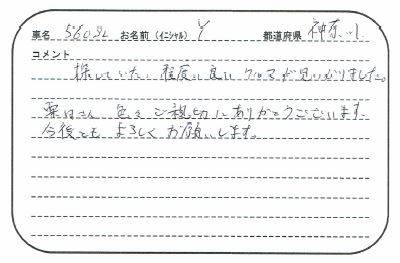 車名 560SL お名前(イニシャル) Y 都道府県 神奈川
コメント
探していた、程度の良い クルマが見つかりました。
栗田さん 色々ご親切にありがとうございます
今後とも よろしく お願いします。